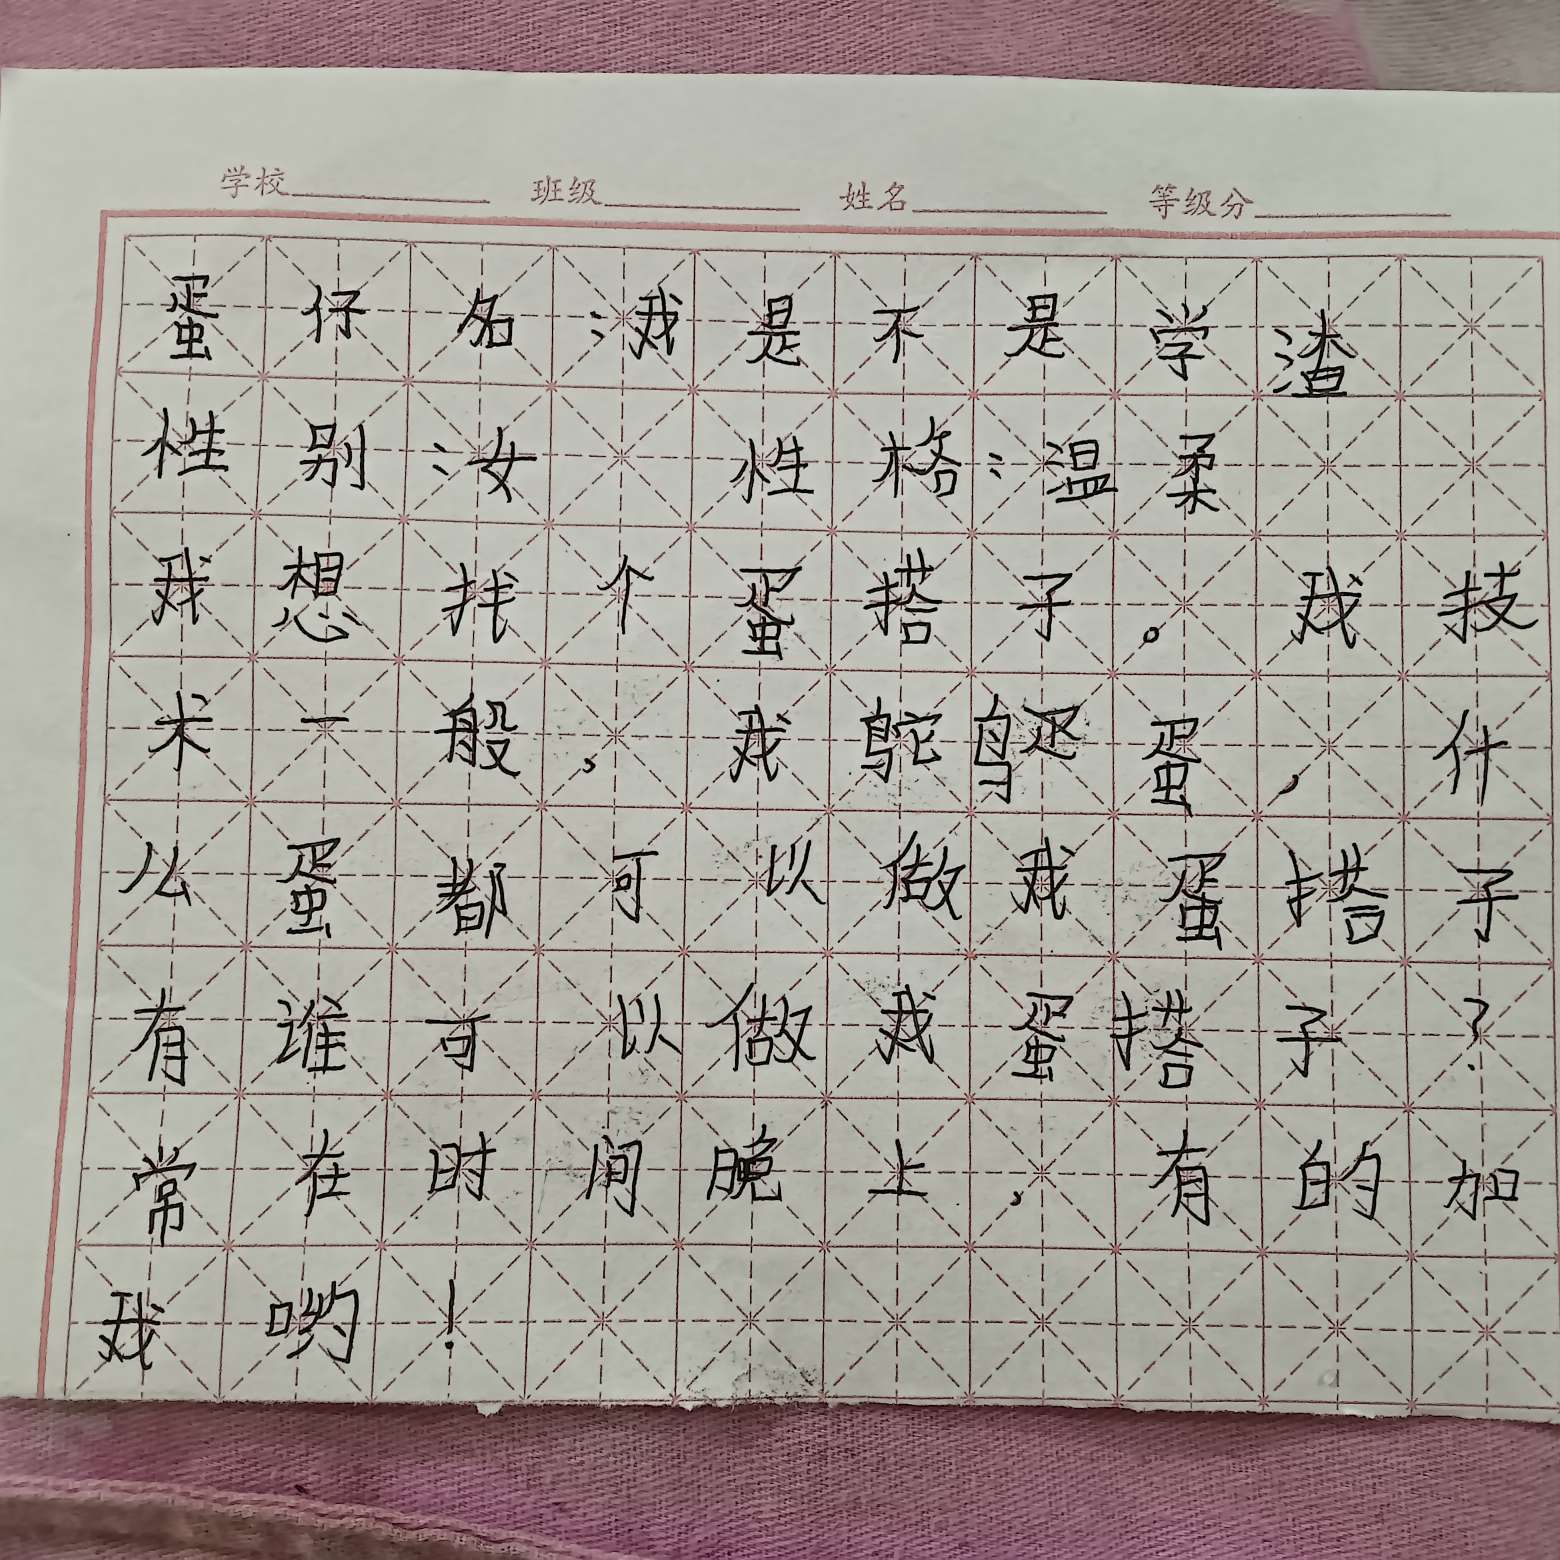 学校 班级 姓名 等级分
蛋仔名:我是不是学渣
性别:女 性格:温柔
我想找个蛋搭子。我技
术一般,我鸵鸟疋蛋,什
么蛋都可以做我蛋搭子
有谁可以做我蛋搭子?
常在时间晚上,有的加
我哟!